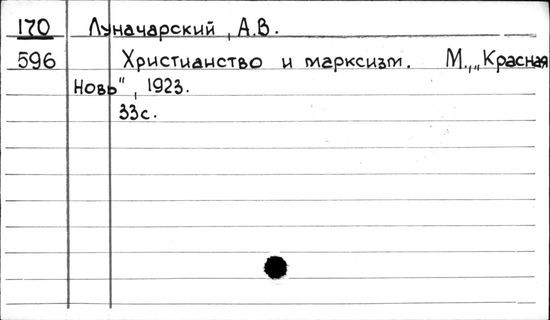 170 Луначарский, А.В.
596 Христианство и марксизм. М., „Красная
Новь", 1923.
33с.